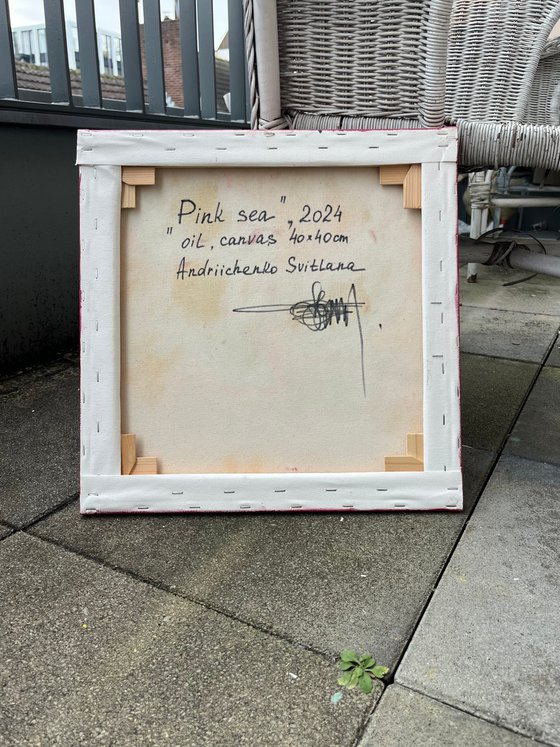 Pink sea", 2024
" oil, canvas 40×40cm
Andriichenko Svitlana